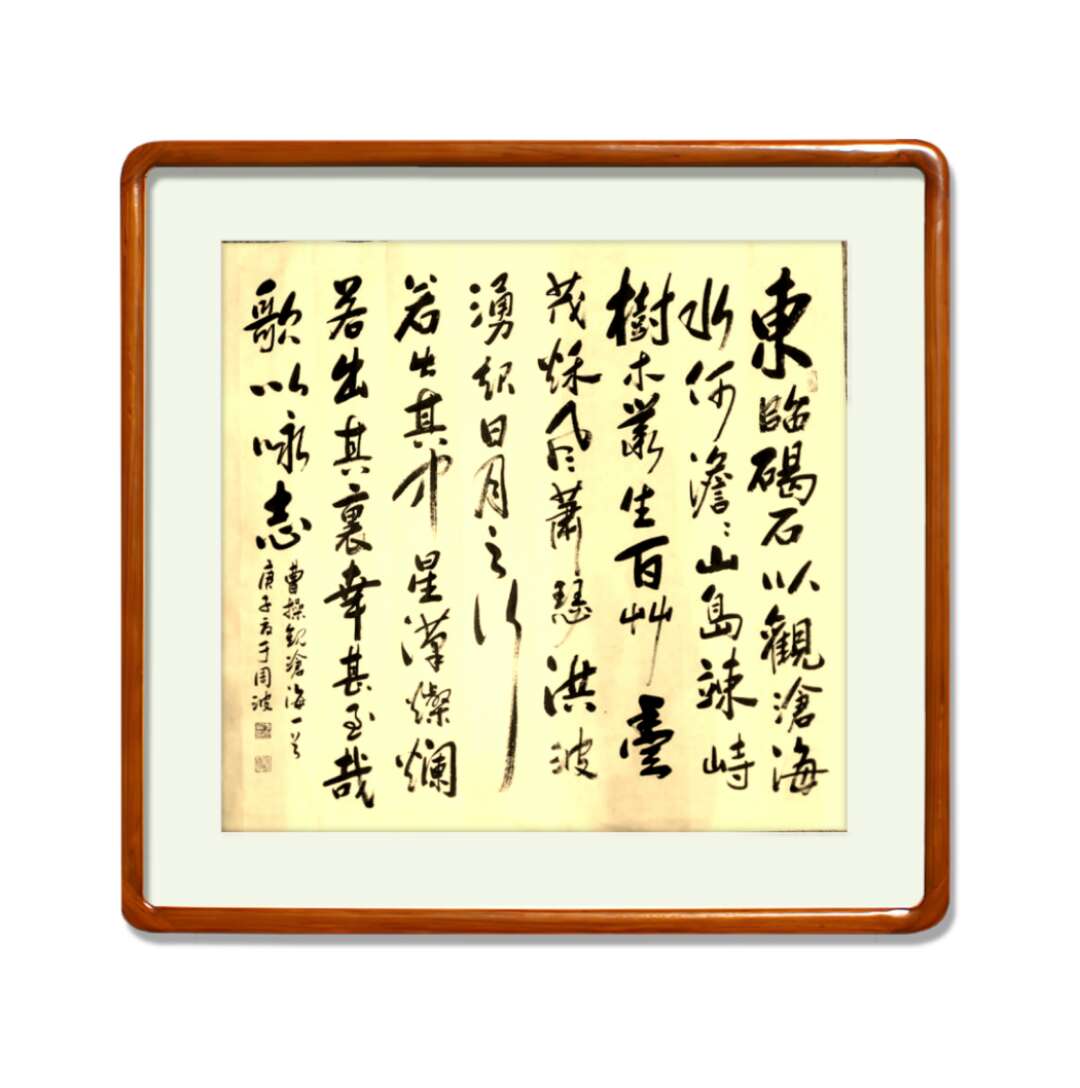 東臨碣石以觀滄海
水何澹〻山島竦峙
樹木叢生百艸豐
茂秌風蕭瑟洪波
湧起日月之行
若出其中星漢燦爛
若出其裏幸甚至哉
歌以咏志
曹操觀滄海一首
庚子于周波